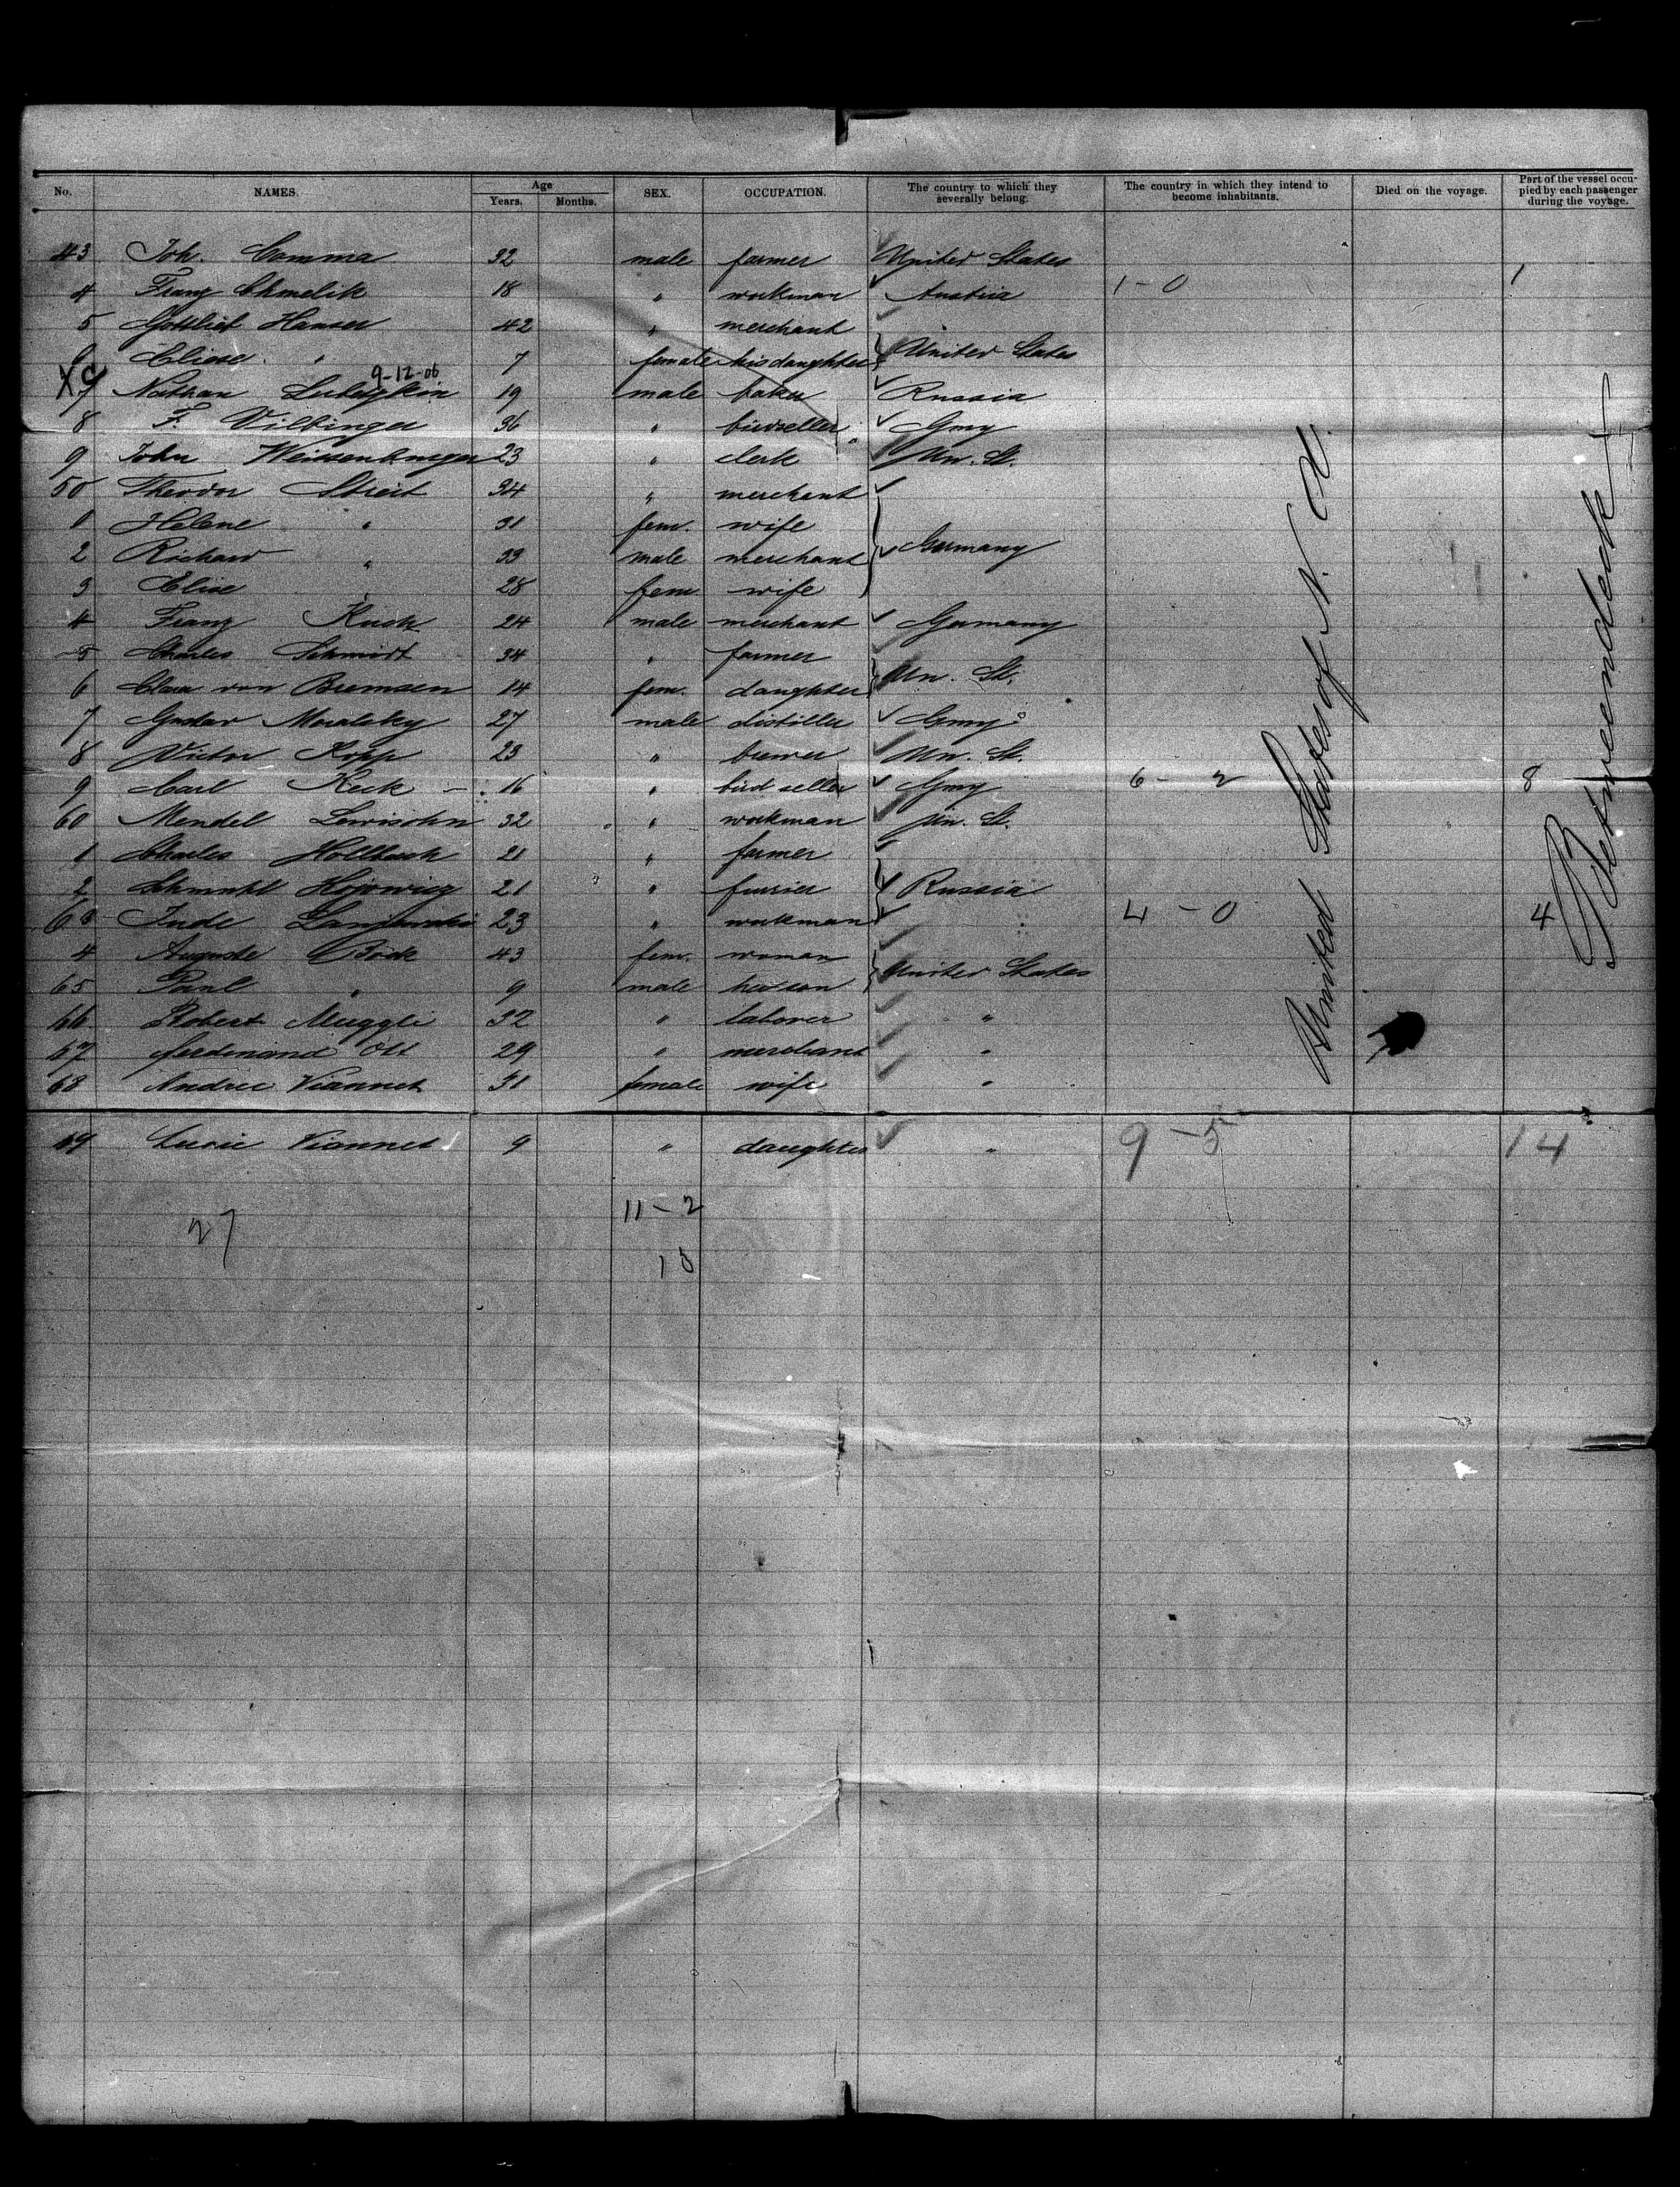 No. NAMES. Age Years. Months. SEX. OCCUPATION. The country to which they severally belong. The country in which they intend to become inhabitants. Died on the voyage. Part of the vessel occupied by each passenger during the voyage.
43 Joh. Comma 32 male farmer United States
4 Franz Chmelik 18 " workman Austria 1 - 0 1
5 Gottlieb Hanser 42 " merchant
6 Eliese " 7 female his daughter United States
9-12-06
7 Nathan 19 male baker Russia
8 F. Vilbinger 36 " birdseller Gmy
9 John Weissenburger 23 " clerk Un. St.
50 Theodor Streit 34 " merchant
1 Helene " 31 fem. wife Germany
2 Richard " 33 male merchant
3 Elise " 28 fem wife
4 Franz Kuch 24 male merchant Germany
5 Charles Schmidt 34 " farmer
6 Clara von Bremsen 14 fem. daughter Un. St.
7 Gustav Moralsky 27 male distiller Gmy
8 Victor Kopp 23 " brewer Un. St.
9 Carl Keck 16 " bird seller Gmy 6 - 2 8
60 Mendel Lewisohn 32 " workman Un. St.
1 Charles Hollbach 21 " farmer
2 21 " furrier Russia
63 23 " workman 4 - 0 4
4 Auguste Böck 43 fem. woman United States
65 Paul " 9 male her son
66 Robert Muggli 32 " laborer "
67 Ferdinand Ott 29 " merchant "
68 Andree Viannet 31 female wife "
69 Lucie Viannet 9 " daughter " 9 - 5 14
27 11 - 2
13
United States of N. A.
Betweendeck